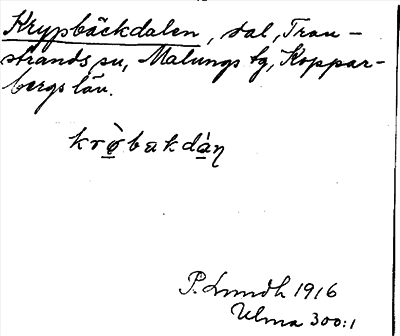 Krypbäckdalen, dal, Tran-
strands su, Malungs tg, Koppar-
bergs län.
krø̱̀bækdá̱ņ
P. Lundh 1916
Ulma 300:1